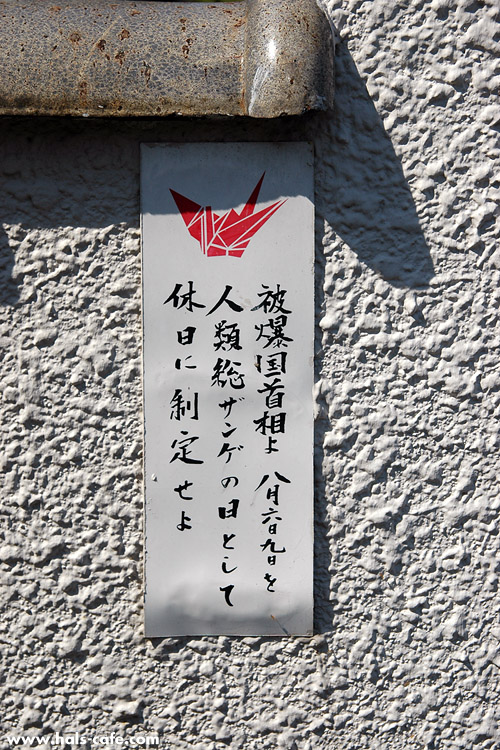 被爆国首相よ 八月六日九日を
人類総ザンゲの日として
休日に制定せよ
www.hals-cafe.com